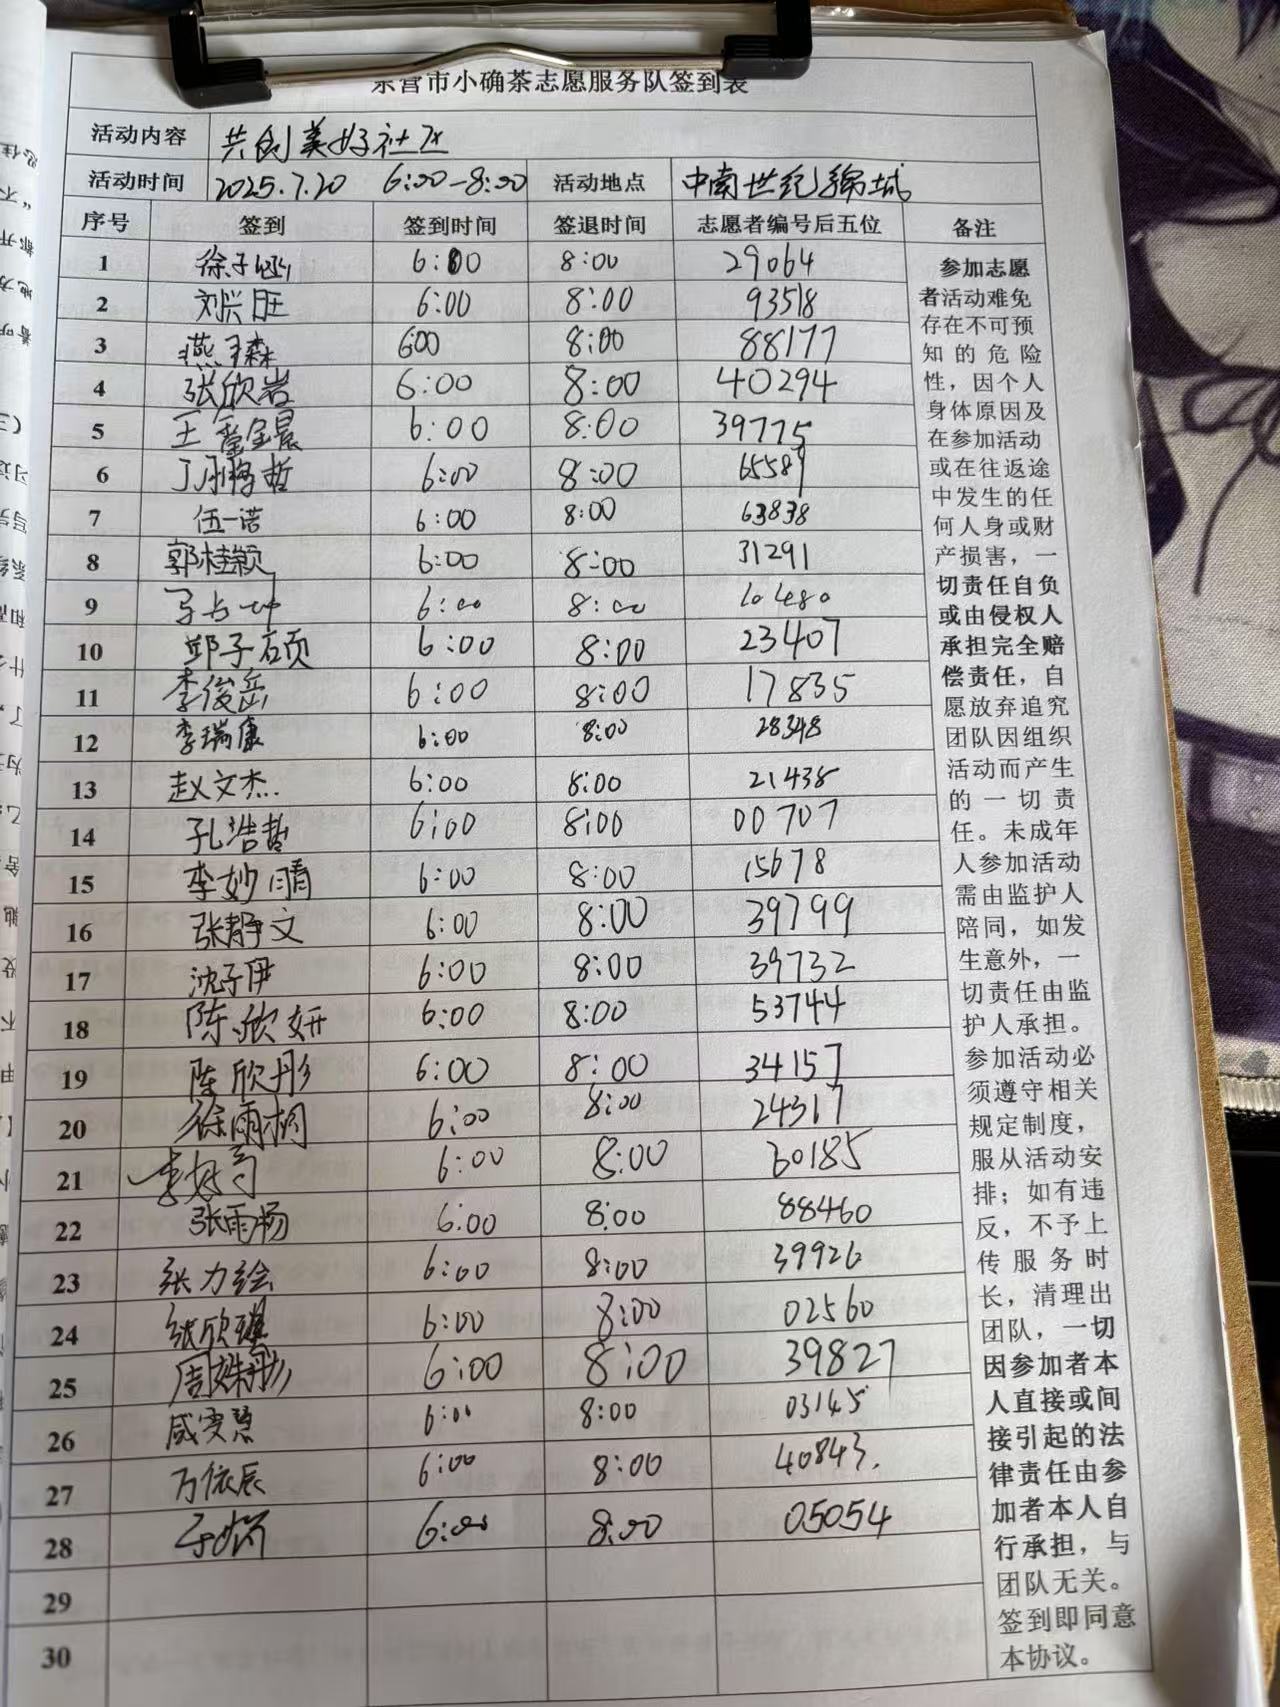 东营市小确茶志愿服务队签到表
活动内容 共创美好社区
活动时间 2025.7.20 6:00-8:00 活动地点 中南世纪锦城
序号 签到 签到时间 签退时间 志愿者编号后五位 备注
1 徐子涵 6:00 8:00 29064
2 刘兴旺 6:00 8:00 93518
3 燕子森 6:00 8:00 88177
4 张欣岩 6:00 8:00 40294
5 王 晨 6:00 8:00 39775
6 6:00 8:00 65589
7 伍一诺 6:00 8:00 63838
8 郭桂颖 6:00 8:00 31291
9 6:00 8:00 10480
10 邱子硕 6:00 8:00 23407
11 李俊岳 6:00 8:00 17835
12 李瑞康 6:00 8:00 28348
13 赵文杰 6:00 8:00 21438
14 孔浩哲 6:00 8:00 00707
15 李妙晴 6:00 8:00 15678
16 张静文 6:00 8:00 39799
17 沈子伊 6:00 8:00 39732
18 陈欣妍 6:00 8:00 53744
19 陈欣彤 6:00 8:00 34157
20 徐雨桐 6:00 8:00 24317
21 6:00 8:00 60185
22 张雨杨 6:00 8:00 88460
23 张力绘 6:00 8:00 39926
24 张欣 6:00 8:00 02560
25 周姝彤 6:00 8:00 39827
26 6:00 8:00 03145
27 万依辰 6:00 8:00 40843.
28 6:00 8:00 05054
29
30
参加志愿
者活动难免
存在不可预
知的危险
性，因个人
身体原因及
在参加活动
或在往返途
中发生的任
何人身或财
产损害，一
切责任自负
或由侵权人
承担完全赔
偿责任，自
愿放弃追究
团队因组织
活动而产生
的一切责
任。未成年
人参加活动
需由监护人
陪同，如发
生意外，一
切责任由监
护人承担。
参加活动必
须遵守相关
规定制度，
服从活动安
排；如有违
反，不予上
传服务时
长，清理出
团队，一切
因参加者本
人直接或间
接引起的法
律责任由参
加者本人自
行承担，与
团队无关。
签到即同意
本协议。